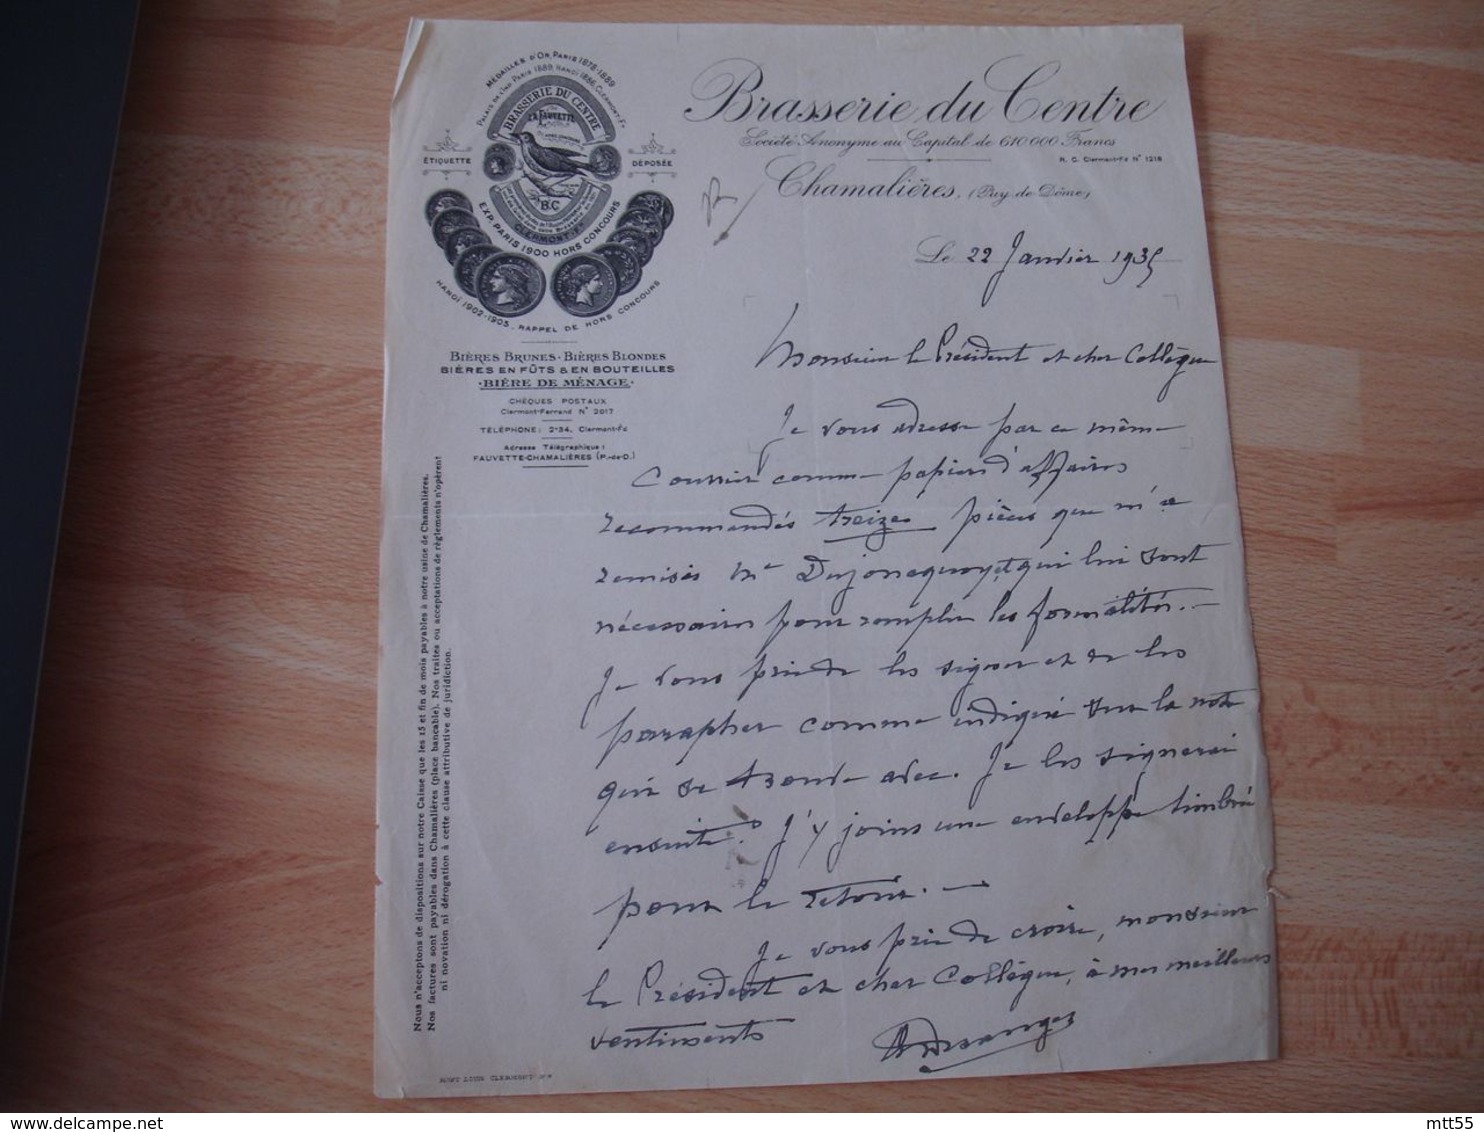 MÉDAILLES D'OR, PARIS 1878-1889
PALAIS DE L'IND. PARIS 1889, HANOI 1886, CLERMONT-Fd
BRASSERIE DU CENTRE
LA FAUVETTE
ÉTIQUETTE
DÉPOSÉE
B.C
CLERMONT-Fd
EXP. PARIS 1900 HORS CONCOURS
HANOÏ 1902-1903. RAPPEL DE HORS CONCOURS
Brasserie du Centre
Société Anonyme au Capital de 610 000 Francs
R. C. Clermont-Fd N° 1218
Chamalières, (Puy-de-Dôme)
Le 22 Janvier 1935
BIÈRES BRUNES · BIÈRES BLONDES
BIÈRES EN FÛTS & EN BOUTEILLES
·BIÈRE DE MÉNAGE·
CHÈQUES POSTAUX
Clermont-Ferrand N° 2017
TÉLÉPHONE: 2-34, Clermont-Fd
Adresse Télégraphique:
FAUVETTE-CHAMALIÈRES (P.-de-D.)
Monsieur le Président et cher Collègue
Je vous adresse par ce même
Courrier comme papiers d'affaires
recommandés treize pièces que m'a
remises Me Dujoncquoy et qui lui sont
nécessaires pour remplir les formalités.-
Je vous prie de les signer et de les
parapher comme indiqué sur la note
qui se trouve avec. Je les signerai
ensuite. J'y joins une enveloppe timbrée
pour le retour. -
Je vous prie de croire, monsieur
le Président et cher Collègue, à mes meilleurs
sentiments
Nous n'acceptons de dispositions sur notre Caisse que les 15 et fin de mois payables à notre usine de Chamalières.
Nos factures sont payables dans Chamalières (place bancable). Nos traites ou acceptations de règlements n'opèrent
ni novation ni dérogation à cette clause attributive de juridiction.
MONT-LOUIS CLERMONT-Fd
mtt55